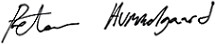 Peter Hummelgaard